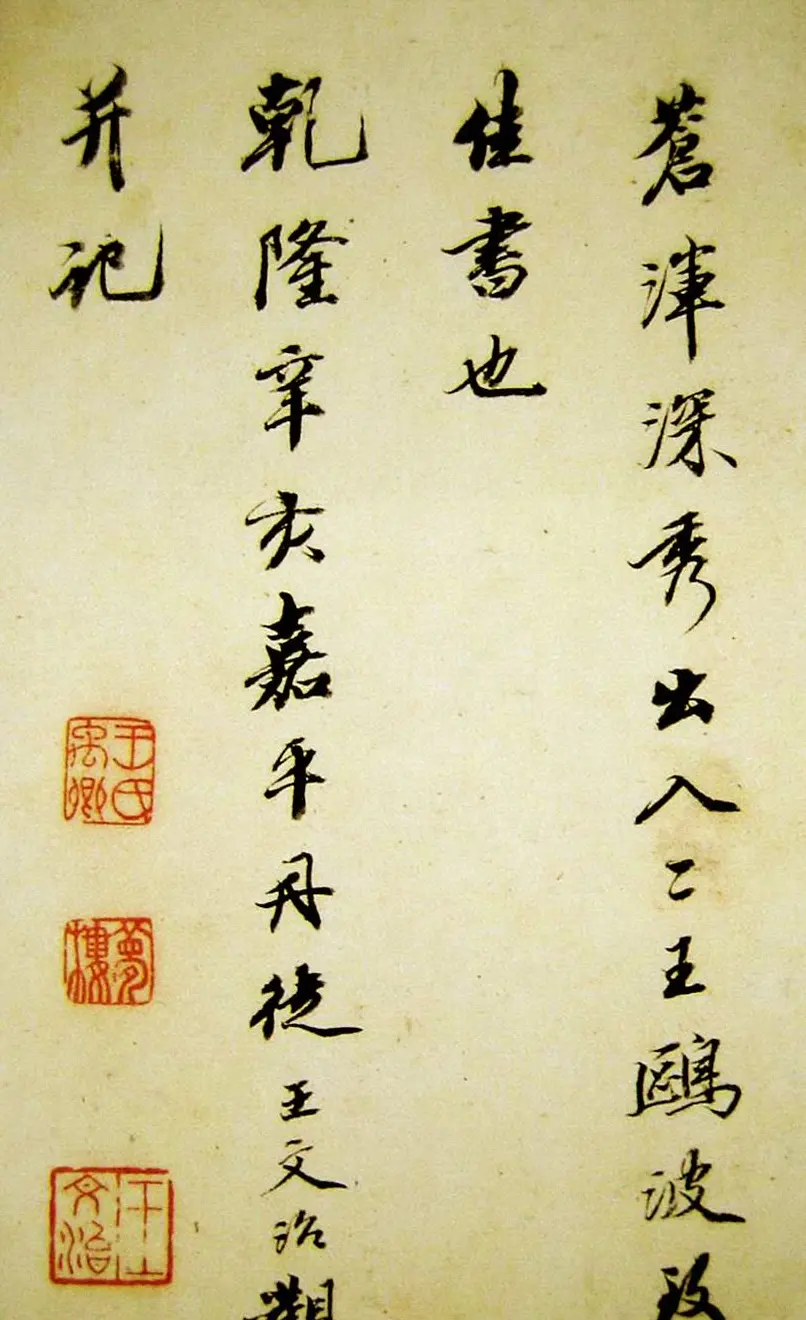 蒼渾深秀出入二王鷗波致
佳書也
乾隆辛亥嘉平丹徒王文治觀
并記
王氏禹卿
夢樓
文治